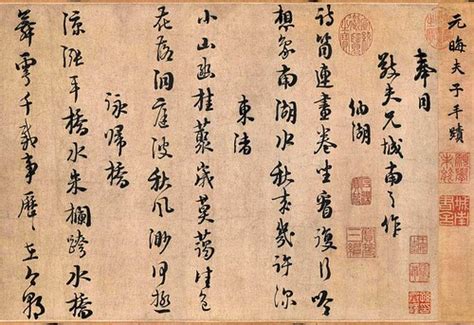 元晦夫子手蹟
奉同
敬夫兄城南之作
納湖
詩筒連畫卷坐看復行吟
想象南湖水秋來幾許深
東渚
小山幽桂叢歲莫藹佳色
花落洞庭波秋風渺何極
詠歸橋
綠漲平湖水朱欄跨小橋
舞雩千載事歷歷在今朝